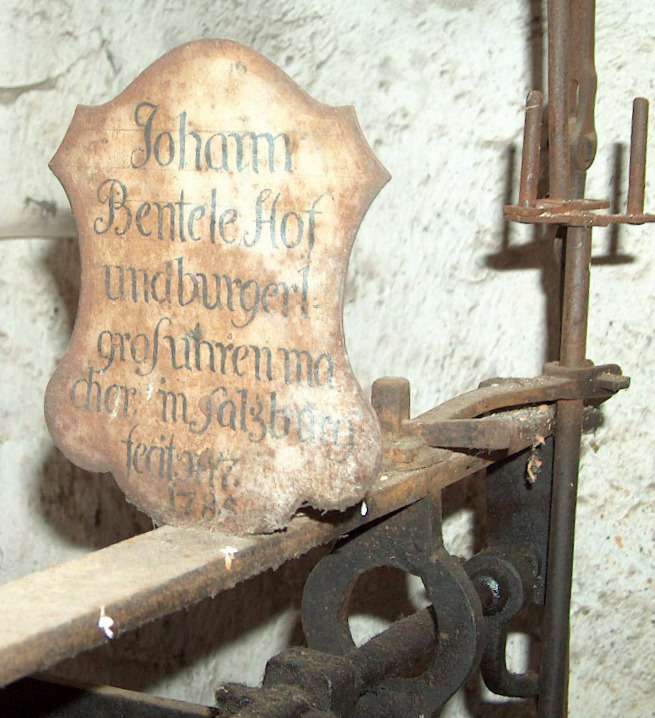 Johann
Bentele Hof
und burgerl:
groſuhrenma
cher: in ſalzburg
fecit
178